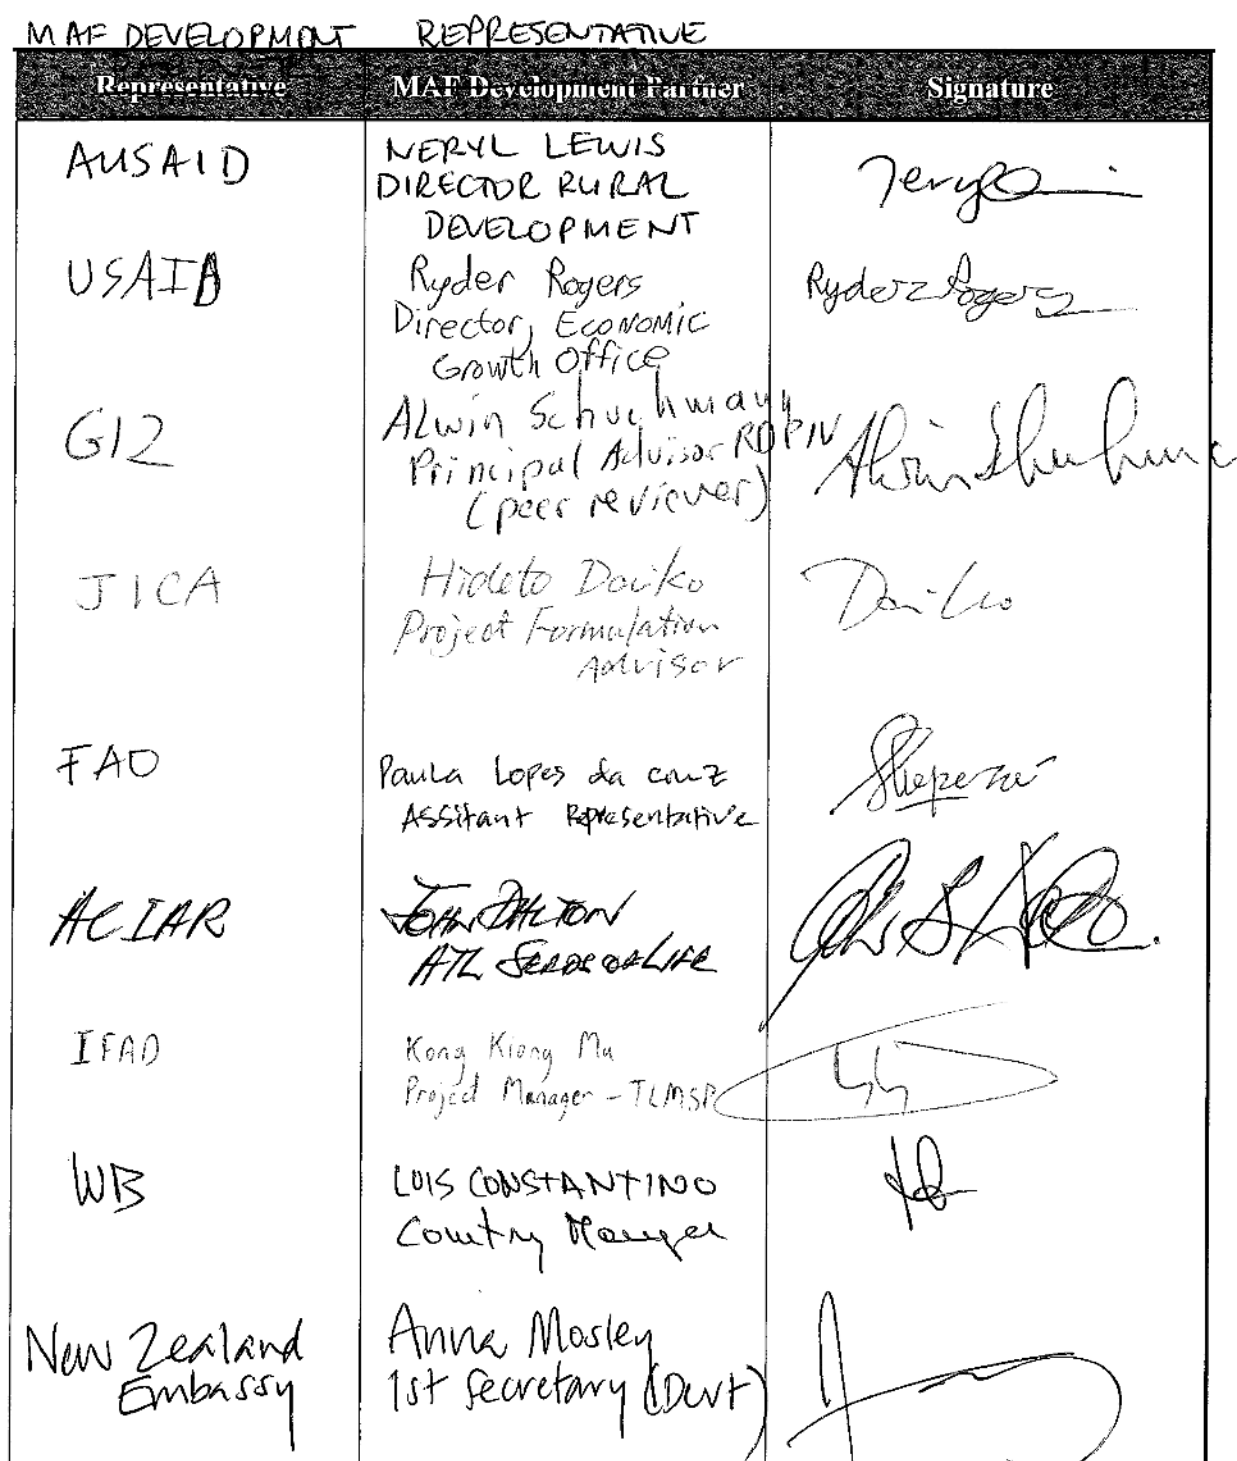 MAF DEVELOPMENT REPRESENTATIVE
Representative MAF Development Partner Signature
AUSAID NERYL LEWIS
DIRECTOR RURAL
DEVELOPMENT
USAID Ryder Rogers Ryder Rogers
Director, Economic
Growth Office
GIZ Alwin Schuchmann
Principal Advisor RDPIV
(peer reviewer)
JICA Hideto Daiko Daiko
Project Formulation
Advisor
FAO Paula Lopes da cruz
Assitant Representative
ACIAR JOHN DALTON
ATL SEEDS OF LIFE
IFAD Kong Kiong Mu
Project Manager - TLMSP
WB LUIS CONSTANTINO
Country Manager
New Zealand Anna Mosley
Embassy 1st Secretary (Devt)